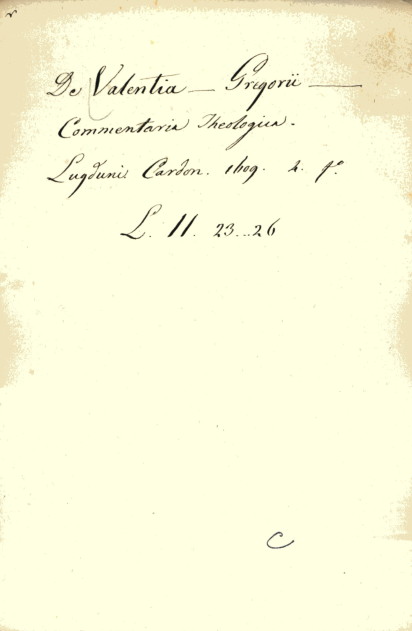 De Valentia — Gregorii —
Commentaria Theologica.
Lugduni Cardon. 1609. 4. fº
L. 11. 23...26
C